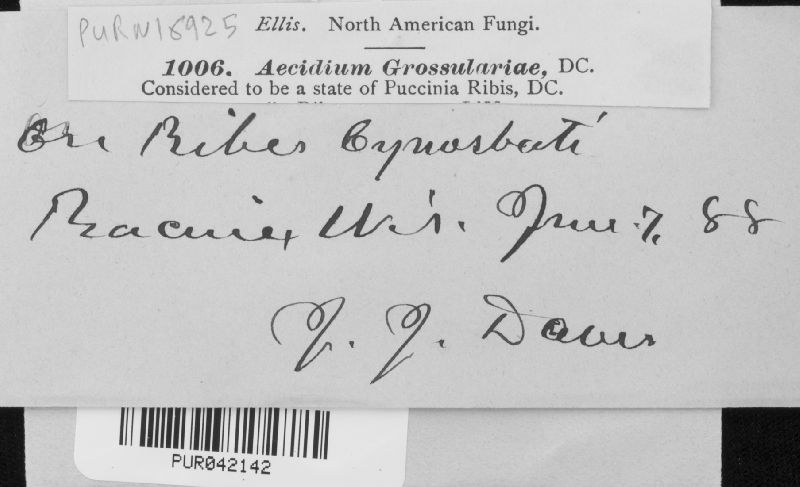 PURN16925 Ellis. North American Fungi.
1006. Aecidium Grossulariae, DC.
Considered to be a state of Puccinia Ribis, DC.
On Ribes Cynosbati
Racine, Wis. June 7, 88
J. J. Davis
PUR042142